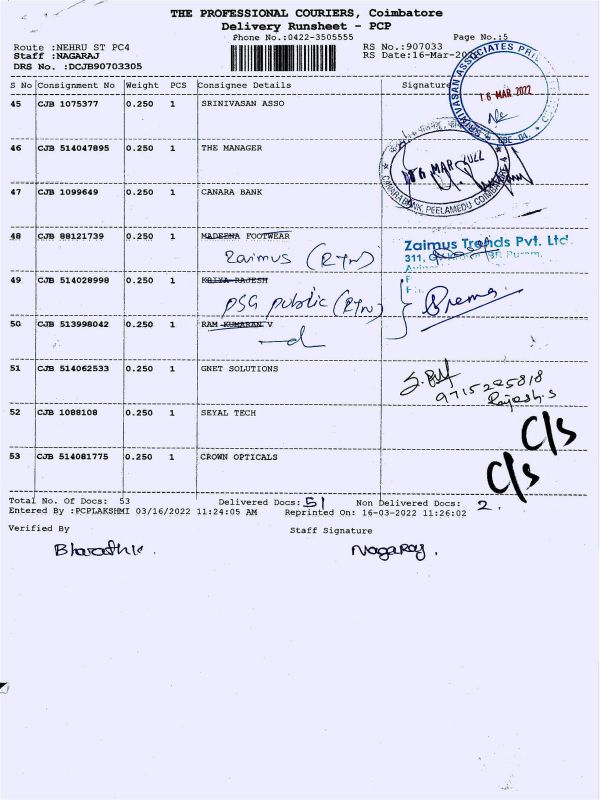 THE PROFESSIONAL COURIERS, Coimbatore
Delivery Runsheet - PCP
Phone No.:0422-3505555 Page No.:5
Route :NEHRU ST PC4 RS No.:907033
Staff :NAGARAJ RS Date:16-Mar-20
DRS No. :DCJB90703305
S No Consignment No Weight PCS Consignee Details Signature
45 CJB 1075377 0.250 1 SRINIVASAN ASSO
SRINIVASAN ASSOCIATES PRI
16 MAR 2022
46 CJB 514047895 0.250 1 THE MANAGER
16 MAR 2022
CANARA BANK, PEELAMEDU COIMBATORE 4
47 CJB 1099649 0.250 1 CANARA BANK
48 CJB 88121739 0.250 1 MADEENA FOOTWEAR
Zaimus (RTN)
Zaimus Trends Pvt. Ltd.
311,
49 CJB 514028998 0.250 1 KRIYA RAJESH
PSG public (RTN)
Prema.
50 CJB 513998042 0.250 1 RAM KUMARAN V
51 CJB 514062533 0.250 1 GNET SOLUTIONS
9715225818
Rajesh.S
52 CJB 1088108 0.250 1 SEYAL TECH
C/S
53 CJB 514081775 0.250 1 CROWN OPTICALS
C/S
Total No. Of Docs: 53 Delivered Docs: 51 Non Delivered Docs: 2.
Entered By :PCPLAKSHMI 03/16/2022 11:24:05 AM Reprinted On: 16-03-2022 11:26:02
Verified By Staff Signature
Bharathk. Nagaraj.